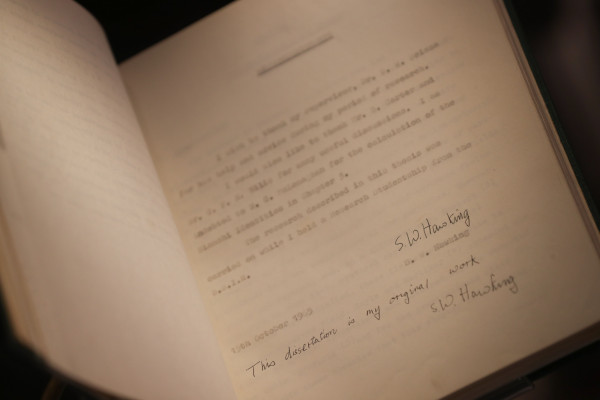 I wish to thank my supervisor, Dr. D. W. Sciama
for his help and advice during my period of research.
I would also like to thank Dr. B. Carter and
Mr. G. F. R. Ellis for many useful discussions. I am
indebted to R. G. for the calculation of the
Bianchi identities in Chapter 2.
The research described in this thesis was
carried on while I held a Research Studentship from the
D.S.I.R.
S.W. Hawking
S. W. Hawking
October
This dissertation is my original work
S.W. Hawking